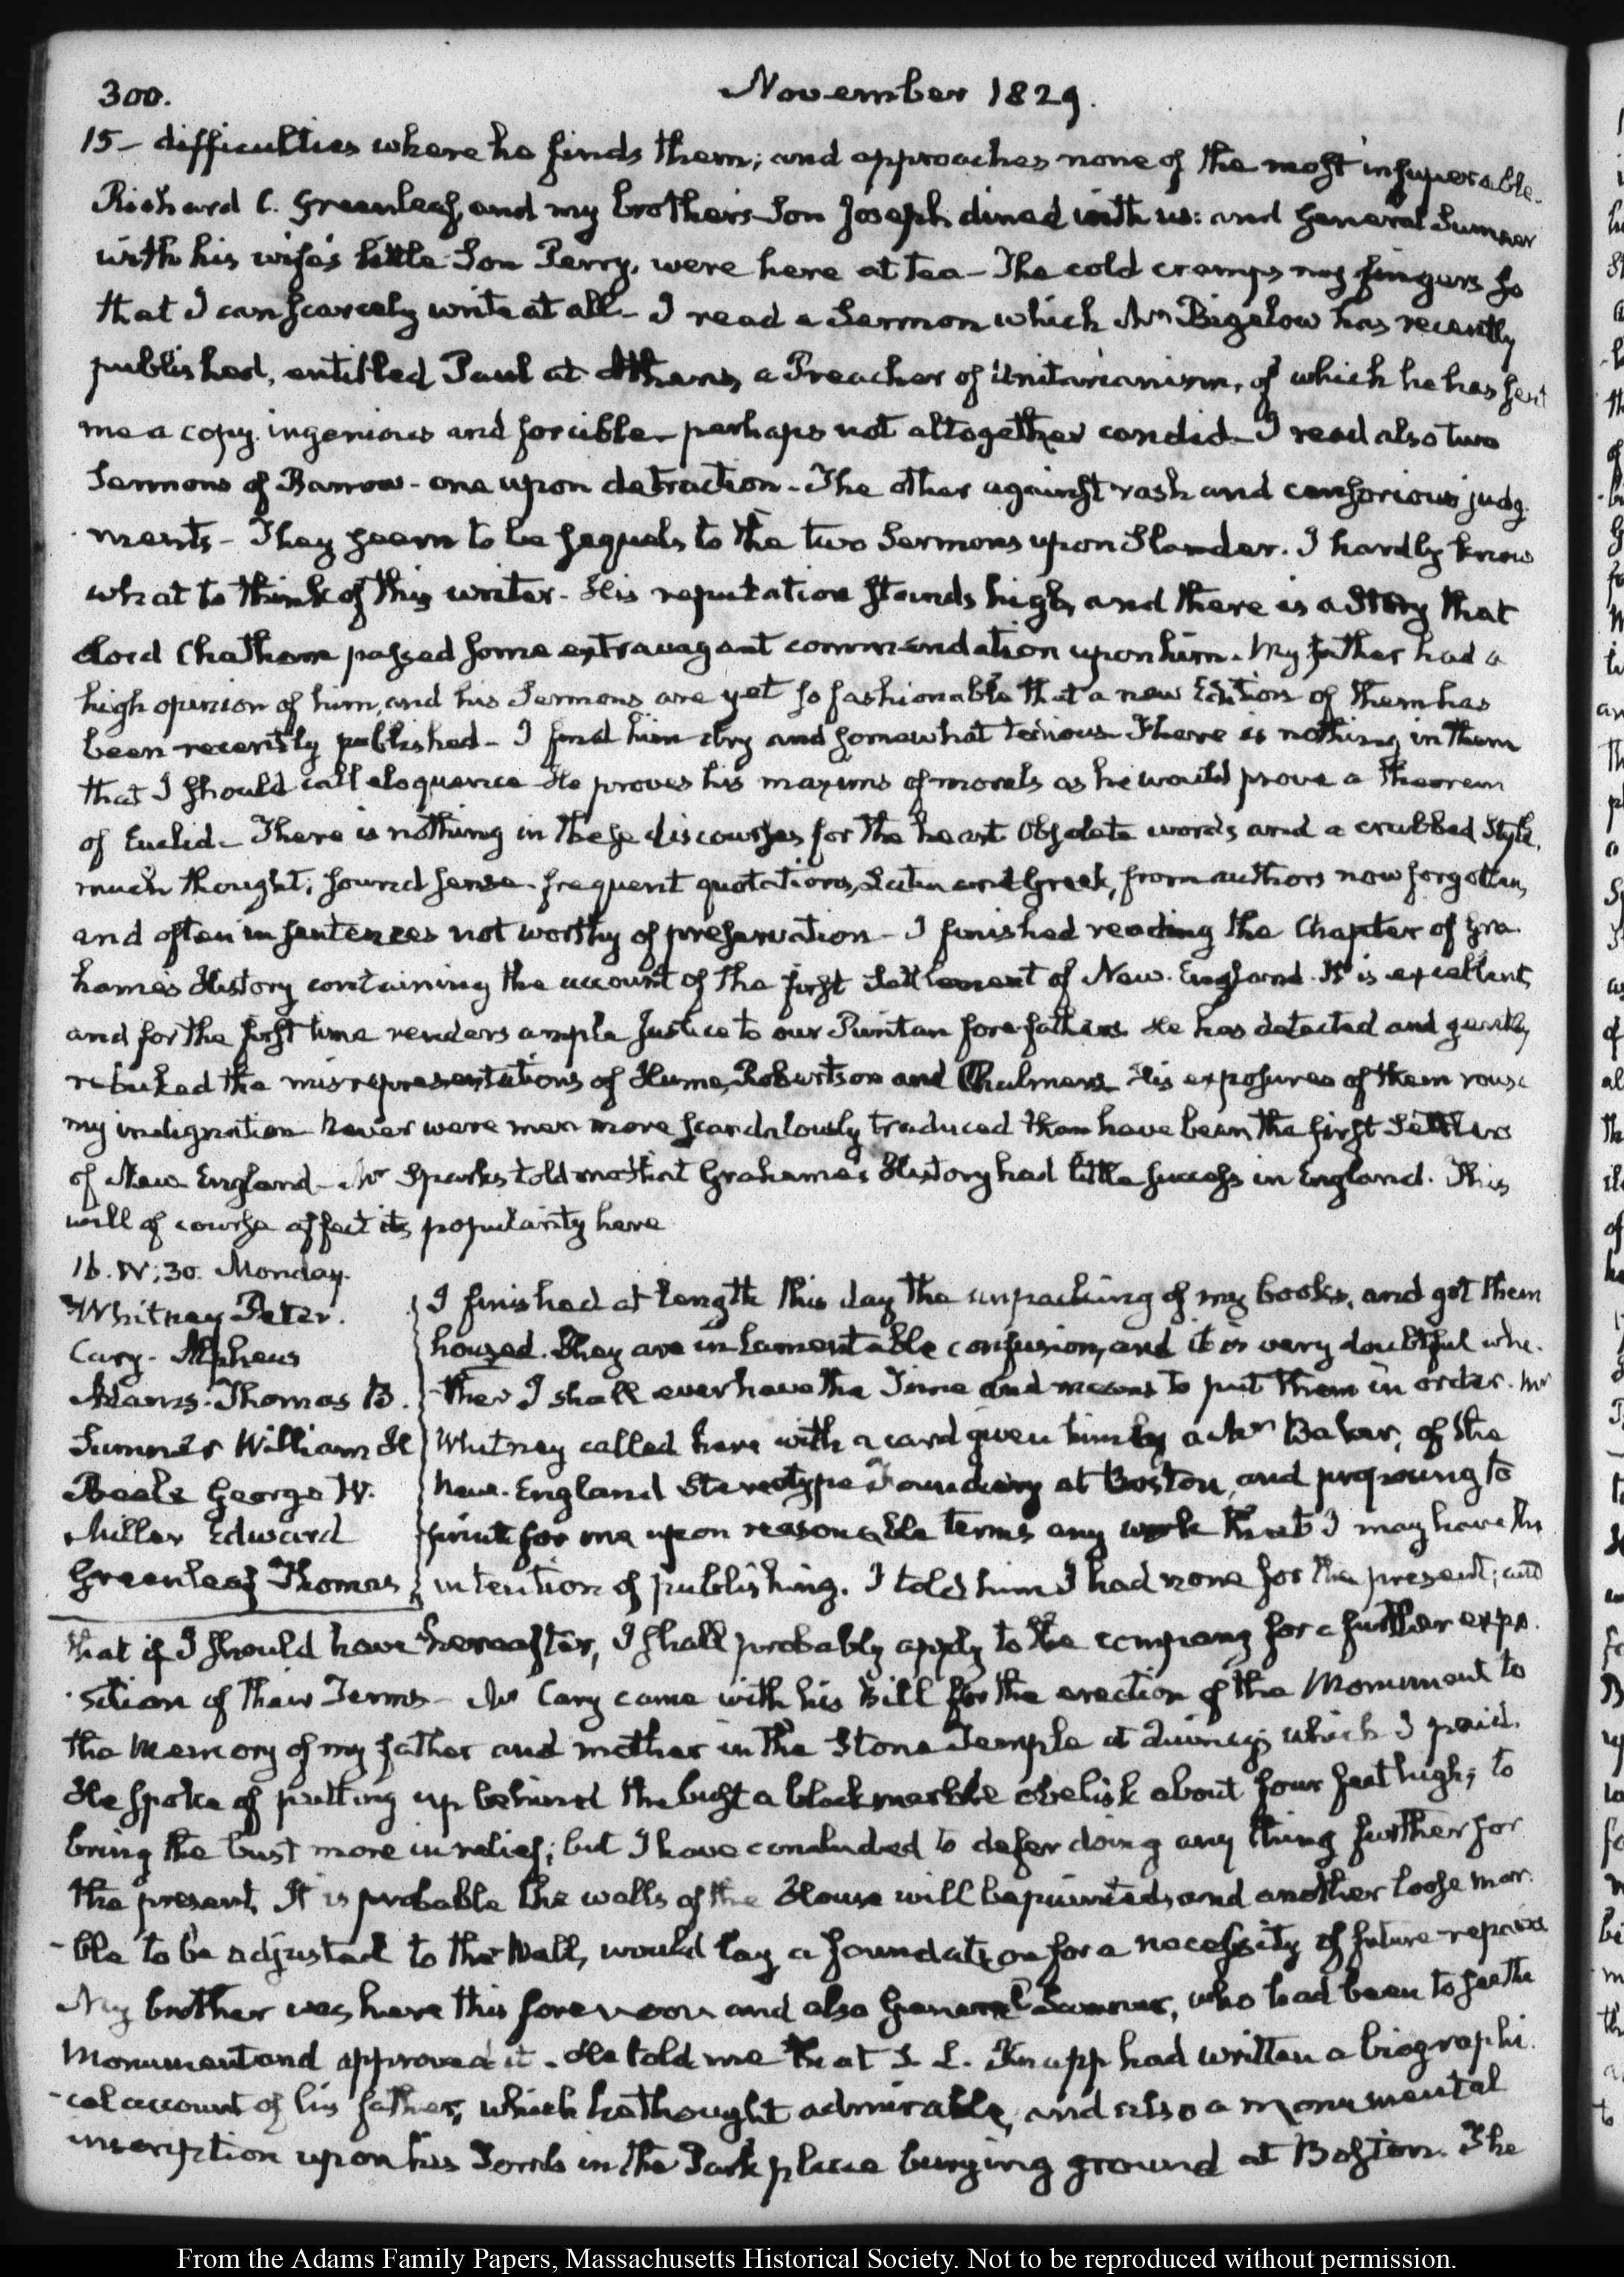 300.
November 1829.
15- difficulties where he finds them; and approaches none of the most insuperable-
Richard C. Greenleaf, and my brother's Son Joseph dined with us: and General Sumner
with his wife's little Son Perry, were here at tea- The cold cramps my fingers so
that I can scarcely write at all- I read a Sermon which Mr Bigelow has recently
published, entitled Paul at Athens, a Preacher of Unitarianism, of which he has sent
me a copy. ingenious and forcible- perhaps not altogether candid- I read also two
Sermons of Barrow- one upon detraction- The other against rash and censorious judg-
ments- They seem to be sequels to the two Sermons upon Slander. I hardly know
what to think of this writer- His reputation stands high, and there is a Story that
Lord Chatham passed some extravagant commendation upon him. My father had a
high opinion of him, and his Sermons are yet so fashionable that a new Edition of them has
been recently published- I find him dry and somewhat tedious There is nothing in them
that I should call eloquence He proves his maxims of morals as he would prove a Theorem
of Euclid- There is nothing in these discourses for the heart Obsolete words and a crabbed Style,
much thought; sound sense- frequent quotations, Latin and Greek, from authors now forgotten,
and often in sentences not worthy of preservation- I finished reading the Chapter of Gra-
hame's History containing the account of the first Settlement of New-England. It is excellent,
and for the first time renders ample Justice to our Puritan forefathers He has detected and gently
rebuked the misrepresentations of Hume, Robertson and Chalmers His exposures of them rouse
my indignation Never were men more scandalously traduced than have been the first Settlers
of New England- Mr Sparks told me that Grahame's History had little success in England. This
will of course affect its popularity here
16. IV:30. Monday.
Whitney Peter.
Cary- Alpheus
Adams- Thomas B.
Sumner William H
Beale George W.
Miller Edward
Greenleaf Thomas
I finished at length this day the unpacking of my books, and got them
housed. They are in lamentable confusion, and it is very doubtful whe-
ther I shall ever have the Time and means to put them in order. Mr
Whitney called here with a card given him by a Mr Baker, of the
New-England Stereotype Foundery at Boston, and proposing to
print for me upon reasonable terms any work that I may have the
intention of publishing. I told him I had none for the present; and
that if I should have hereafter, I shall probably apply to the company for a further expo-
sition of their Terms- Mr Cary came with his Bill for the erection of the Monument to
the Memory of my father and mother in the Stone Temple at Quincy; which I paid.
He spoke of putting up behind the bust a black marble obelisk about four feet high; to
bring the bust more in relief; but I have concluded to defer doing any thing further for
the present. It is probable the walls of the House will be painted, and another loose mar-
ble to be adjusted to the Wall, would lay a foundation for a necessity of future repairs
My brother was here this forenoon and also General Sumner, who had been to see the
Monument and approved it- He told me that S. L. Knapp had written a biographi-
cal account of his father, which he thought admirable, and also a monumental
inscription upon his Tomb in the Park place burying ground at Boston. The
From the Adams Family Papers, Massachusetts Historical Society. Not to be reproduced without permission.